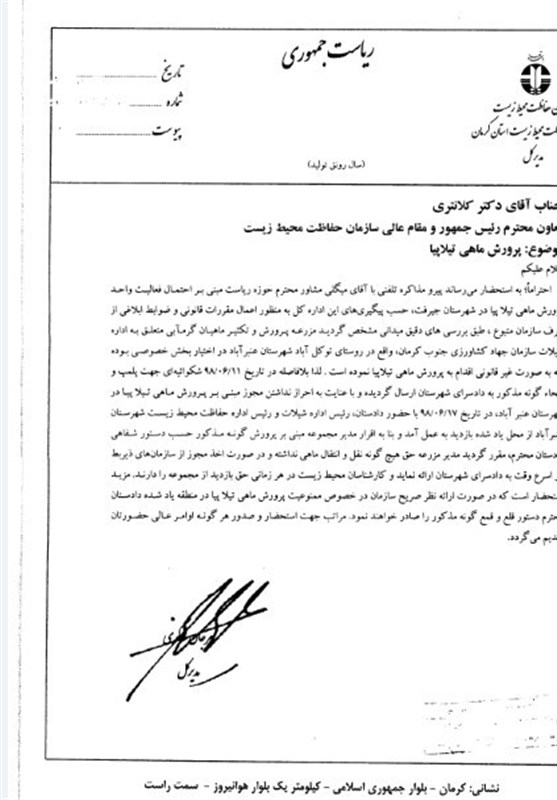 ریاست جمهوری
ن حفاظت محیط زیست
ت محیط زیست استان کرمان
مدیر کل
تاریخ
شماره
پیوست
(سال رونق تولید)
جناب آقای دکتر کلانتری
عاون محترم رئیس جمهور و مقام عالی سازمان حفاظت محیط زیست
وضوع: پرورش ماهی تیلاپیا
لام علیکم
احتراماً؛ به استحضار می‌رساند پیرو مذاکره تلفنی با آقای میگلی مشاور محترم حوزه ریاست مبنی بر احتمال فعالیت واحد
ورش ماهی تیلا پیا در شهرستان جیرفت، حسب پیگیری‌های این اداره کل به منظور اعمال مقررات قانونی و ضوابط ابلاغی از
رف سازمان متبوع ، طبق بررسی های دقیق میدانی مشخص گردید مزرعه پرورش و تکثیر ماهیان گرمآبی متعلق به اداره
یلات سازمان جهاد کشاورزی جنوب کرمان، واقع در روستای توکل آباد شهرستان عنبرآباد در اختیار بخش خصوصی بوده
ه به صورت غیر قانونی اقدام به پرورش ماهی تیلاپیا نموده است . لذا بلافاصله در تاریخ ۹۸/۰۶/۱۱ شکوائیه‌ای جهت پلمپ و
حاء گونه مذکور به دادسرای شهرستان ارسال گردیده و با عنایت به احراز نداشتن مجوز مبنی بر پرورش ماهی تیلا پیا در
هرستان عنبر آباد، در تاریخ ۹۸/۰۶/۱۷ با حضور دادستان، رئیس اداره شیلات و رئیس اداره حفاظت محیط زیست شهرستان
نبرآباد از محل یاد شده بازدید به عمل آمد و بنا به اقرار مدیر مجموعه مبنی بر پرورش گونه مذکور حسب دستور شفاهی
دستان محترم، مقرر گردید مدیر مزرعه حق هیچ گونه نقل و انتقال ماهی نداشته و در صورت اخذ مجوز از سازمان‌های ذیربط
ر اسرع وقت به دادسرای شهرستان ارائه نماید و کارشناسان محیط زیست در هر زمانی حق بازدید از مجموعه را دارند. مزید
ستحضار است که در صورت ارائه نظر صریح سازمان در خصوص ممنوعیت پرورش ماهی تیلا پیا در منطقه یاد شده دادستان
حترم دستور قلع و قمع گونه مذکور را صادر خواهند نمود. مراتب جهت استحضار و صدور هر گونه اوامر عالی حضورتان
دیم می‌گردد.
مدیر کل
نشانی: کرمان - بلوار جمهوری اسلامی - کیلومتر یک بلوار هوانیروز - سمت راست